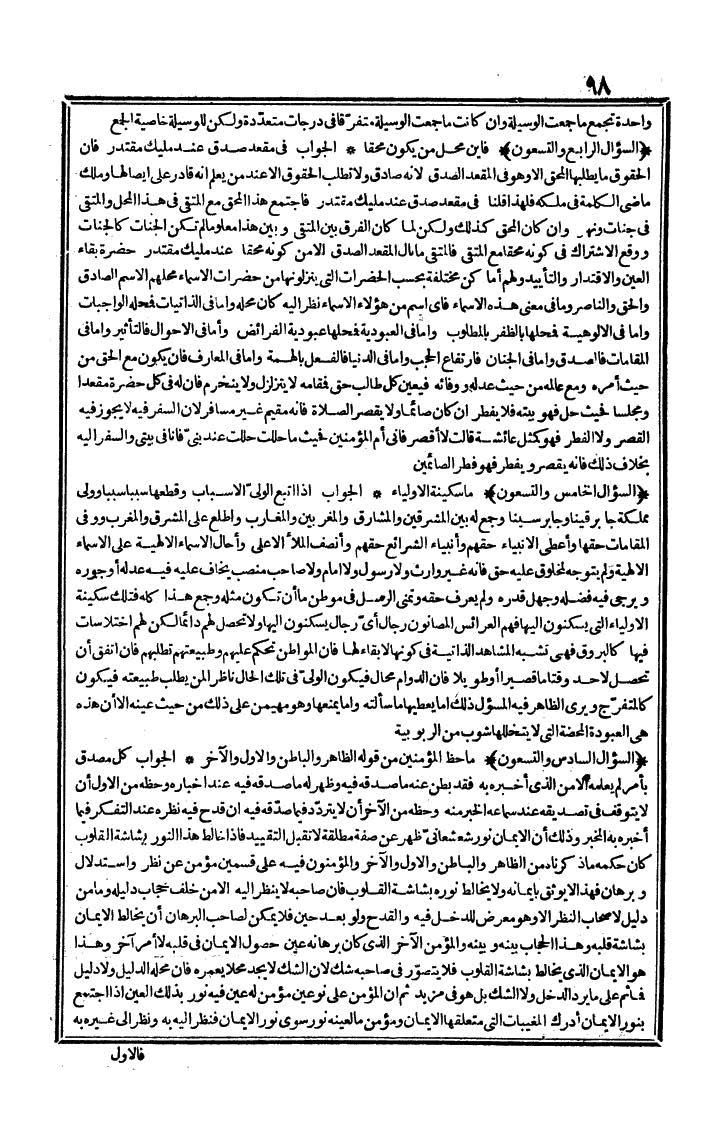 ٩٨
واحدة تجمع ما جمعت الوسيلة وان كانت ما جمعت الوسيلة متفرّقا فى درجات متعدّدة ولكن للوسيلة خاصية الجمع
﴿السؤال الرابع والتسعون﴾ فاين محل من يكون محقا * الجواب فى مقعد صدق عند مليك مقتدر فان
الحقوق ما يطلبها المحق الا وهو فى المقعد الصدق لانه صادق ولا تطلب الحقوق الا عند من يعلم انه قادر على ايصالها وملك
ماضى الكلمة فى ملكه فلهذا قلنا فى مقعد صدق عند مليك مقتدر فاجتمع هذا المحق مع المتقى فى هذا المحل والمتقى
فى جنات ونهر وان كان المحق كذلك ولكن لما كان الفرق بين المتقى وبين هذا معلوما لم تكن الجنات كالجنات
ووقع الاشتراك فى كونه محقا مع المتقى فالمتقى ما نال المقعد الصدق الا من كونه محقا عند مليك مقتدر حضرة بقاء
العين والاقتدار والتأييد ولهم أماكن مختلفة بحسب الحضرات التى ينزلونها من حضرات الاسماء محلهم الاسم الصادق
والحق والناصر وما فى معنى هذه الاسماء فاى اسم من هؤلاء الاسماء نظر اليه كان محله واما فى الذاتيات فمحله الواجبات
واما فى الالوهية فمحلها بالظفر بالمطلوب واما فى العبودية فمحلها عبودية الفرائض وأما فى الاحوال فالتأثير واما فى
المقامات فالصدق واما فى الجنان فارتفاع الحجب واما فى الدنيا فالفعل بالهمة واما فى المعارف فان يكون مع الحق من
حيث أمره ومع عالمه من حيث عدله ووفائه فيعين كل طالب حق فمقامه لا يتزلزل ولا ينخرم فان له فى كل حضرة مقعدا
ومجلسا فحيث حل فهو بيته فلا يفطر ان كان صائما ولا يقصر الصلاة فانه مقيم غير مسافر لان السفر فيه لا يجوز فيه
القصر ولا الفطر فهو كمثل عائشة قالت لا أقصر فانى أم المؤمنين فحيث ما حللت حللت عند بنىّ فانا فى بيتى والسفر اليه
بخلاف ذلك فانه يقصر ويفطر فهو فطر الصائمين
﴿السؤال الخامس والتسعون﴾ ما سكينة الاولياء * الجواب اذا اتبع الولىّ الاسباب وقطعها سببا سببا وولى
مملكة جابرقينا وجابرسينا وجمع له بين المشرقين والمشارق والمغربين والمغارب واطلع على المشرق والمغرب ووفى
المقامات حقها وأعطى الانبياء حقهم وأنبياء الشرائع حقهم وأنصف الملأ الاعلى وأحال الاسماء الالهية على الاسماء
الالهية ولم يتوجه لمخلوق عليه حق فانه غير وارث ولا رسول ولا امام ولا صاحب منصب يخاف عليه فيه عدله أو جوره
ويرجى فيه فضله وجهل قدره ولم يعرف حقه وتمنى الرسل فى موطن ما أن تكون مثله وجمع هذا كله فتلك سكينة
الاولياء التى يسكنون اليها فهم العرائس المصانون رجال أىّ رجال يسكنون اليها ولا تحصل لهم دائما لكن لهم اختلاسات
فيها كالبروق فهى تشبه المشاهد الذاتية فى كونها لا بقاء لها فان المواطن تحكم عليهم وطبيعتهم تطلبهم فان اتفق أن
تحصل لاحد وقتا ما قصيرا أو طويلا فان الدوام محال فيكون الولىّ فى تلك الحال ناظرا لمن يطلب طبيعته فيكون
كالمتفرّج ويرى الظاهر فيه المسؤل ذلك اما يعطيها ما سألته واما يمنعها وهو مهيمن على ذلك من حيث عينه الا أن هذه
هى العبودة المحضة التى لا يتخللها شوب من الربوبية
﴿السؤال السادس والتسعون﴾ ما حظ المؤمنين من قوله الظاهر والباطن والاول والآخر * الجواب كل مصدق
بأمر لم يعلمه الا من الذى أخبره به فقد بطن عنه ما صدقه فيه وظهر له ما صدقه فيه عند اخباره وحظه من الاول أن
لا يتوقف فى تصديقه عند سماعه الخبر منه وحظه من الآخر أن لا يتردّد فيما صدّقه فيه ان قدح فيه نظره عند التفكر فيما
أخبره به المخبر وذلك أن الايمان نور شعشعانىّ ظهر عن صفة مطلقة لا تقبل التقييد فاذا خالط هذا النور بشاشة القلوب
كان حكمه ما ذكرناه من الظاهر والباطن والاول والآخر والمؤمنون فيه على قسمين مؤمن عن نظر واستدلال
وبرهان فهذا لا يوثق بايمانه ولا يخالط نوره بشاشة القلوب فان صاحبه لا ينظر اليه الا من خلف حجاب دليله وما من
دليل لاصحاب النظر الا وهو معرض للدخل فيه والقدح ولو بعد حين فلا يمكن لصاحب البرهان أن يخالط الايمان
بشاشة قلبه وهذا الحجاب بينه وبينه والمؤمن الآخر الذى كان برهانه عين حصول الايمان فى قلبه لا أمر آخر وهذا
هو الايمان الذى يخالط بشاشة القلوب فلا يتصوّر فى صاحبه شك لان الشك لا يجد محلا يعمره فان محله الدليل ولا دليل
فما ثم على ما يرد الدخل ولا الشك بل هو فى مزيد ثم ان المؤمن على نوعين مؤمن له عين فيه نور بذلك العين اذا اجتمع
بنور الايمان أدرك المغيبات التى متعلقها الايمان ومؤمن ما لعينه نور سوى نور الايمان فنظر اليه به ونظر الى غيره به
فالاول